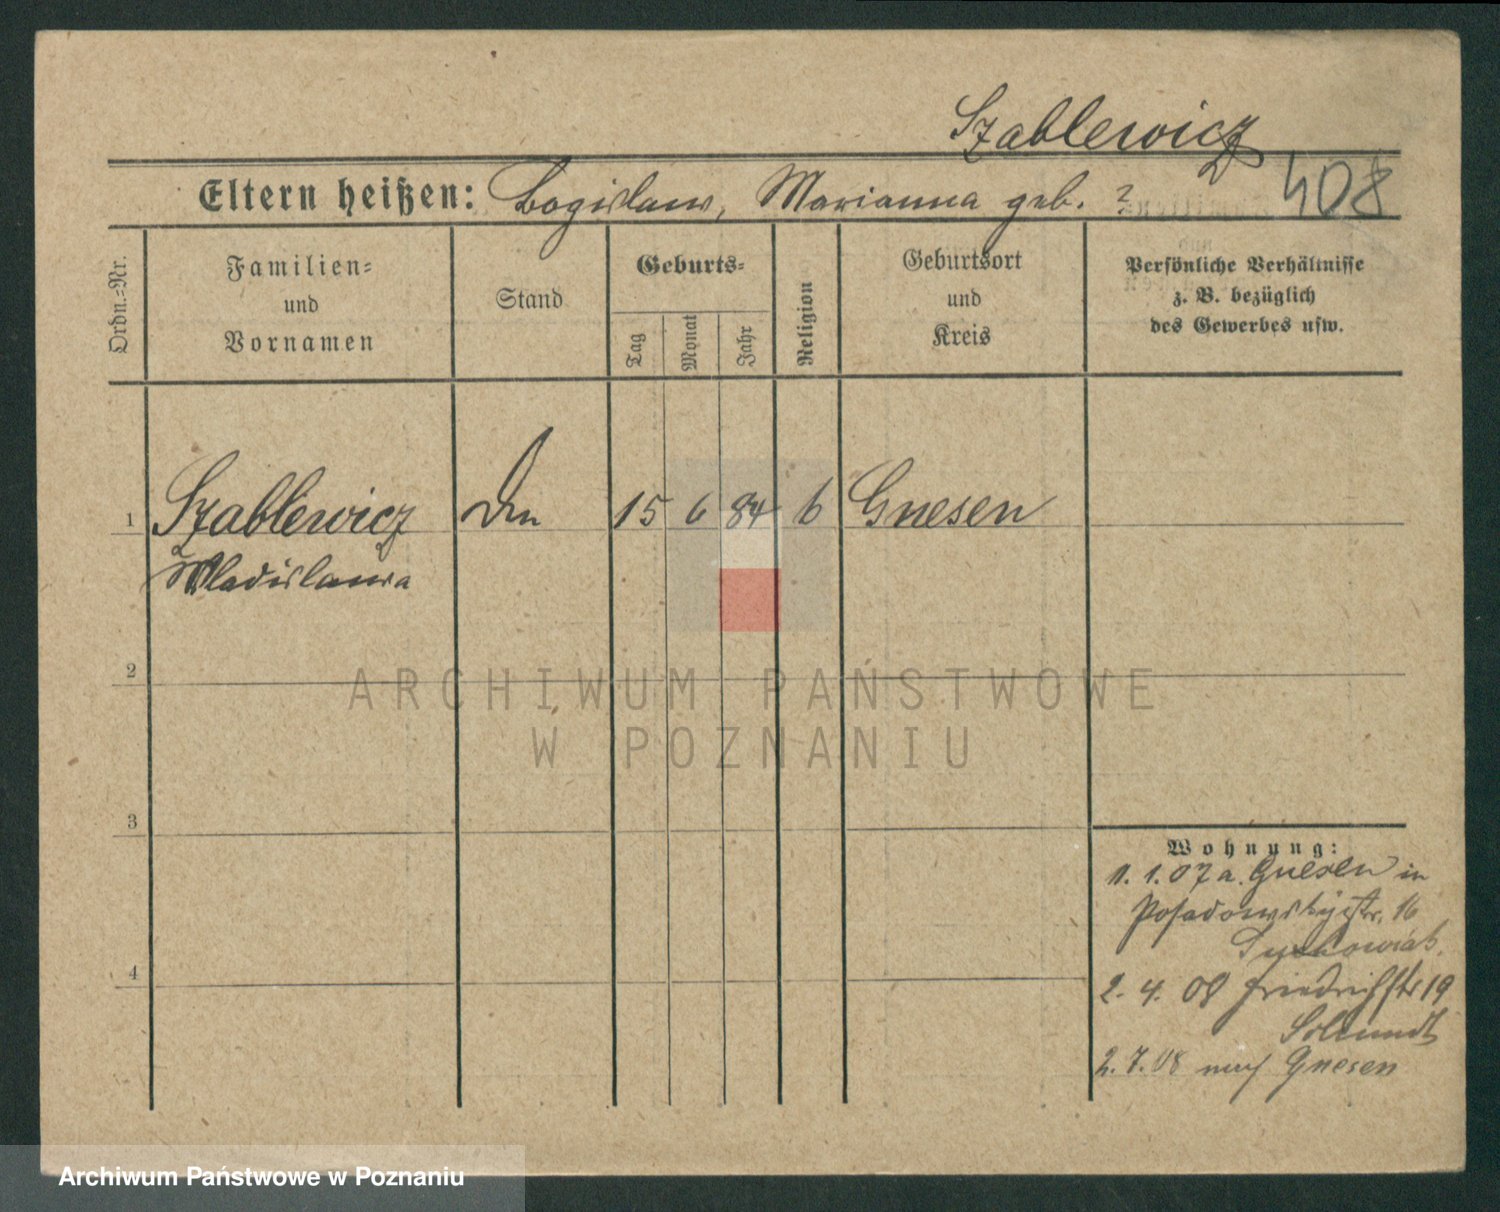 Szablewicz
Eltern heißen: Bogislaw, Marianna geb. ?
408
Ordn.-Nr.
Familien-
und
Vornamen
Stand
Geburts-
Tag
Monat
Jahr
Religion
Geburtsort
und
Kreis
Persönliche Verhältnisse
z. B. bezüglich
des Gewerbes usw.
1 Szablewicz 15 6 84 Gnesen
Wladislawa
2
3
4
Wohnung:
11. 1. 07 a. Gnesen in
Posadowskystr. 16
2. 4. 08 Friedrichstr 19
2. 7. 08 nach Gnesen
ARCHIWUM PAŃSTWOWE
W POZNANIU
Archiwum Państwowe w Poznaniu